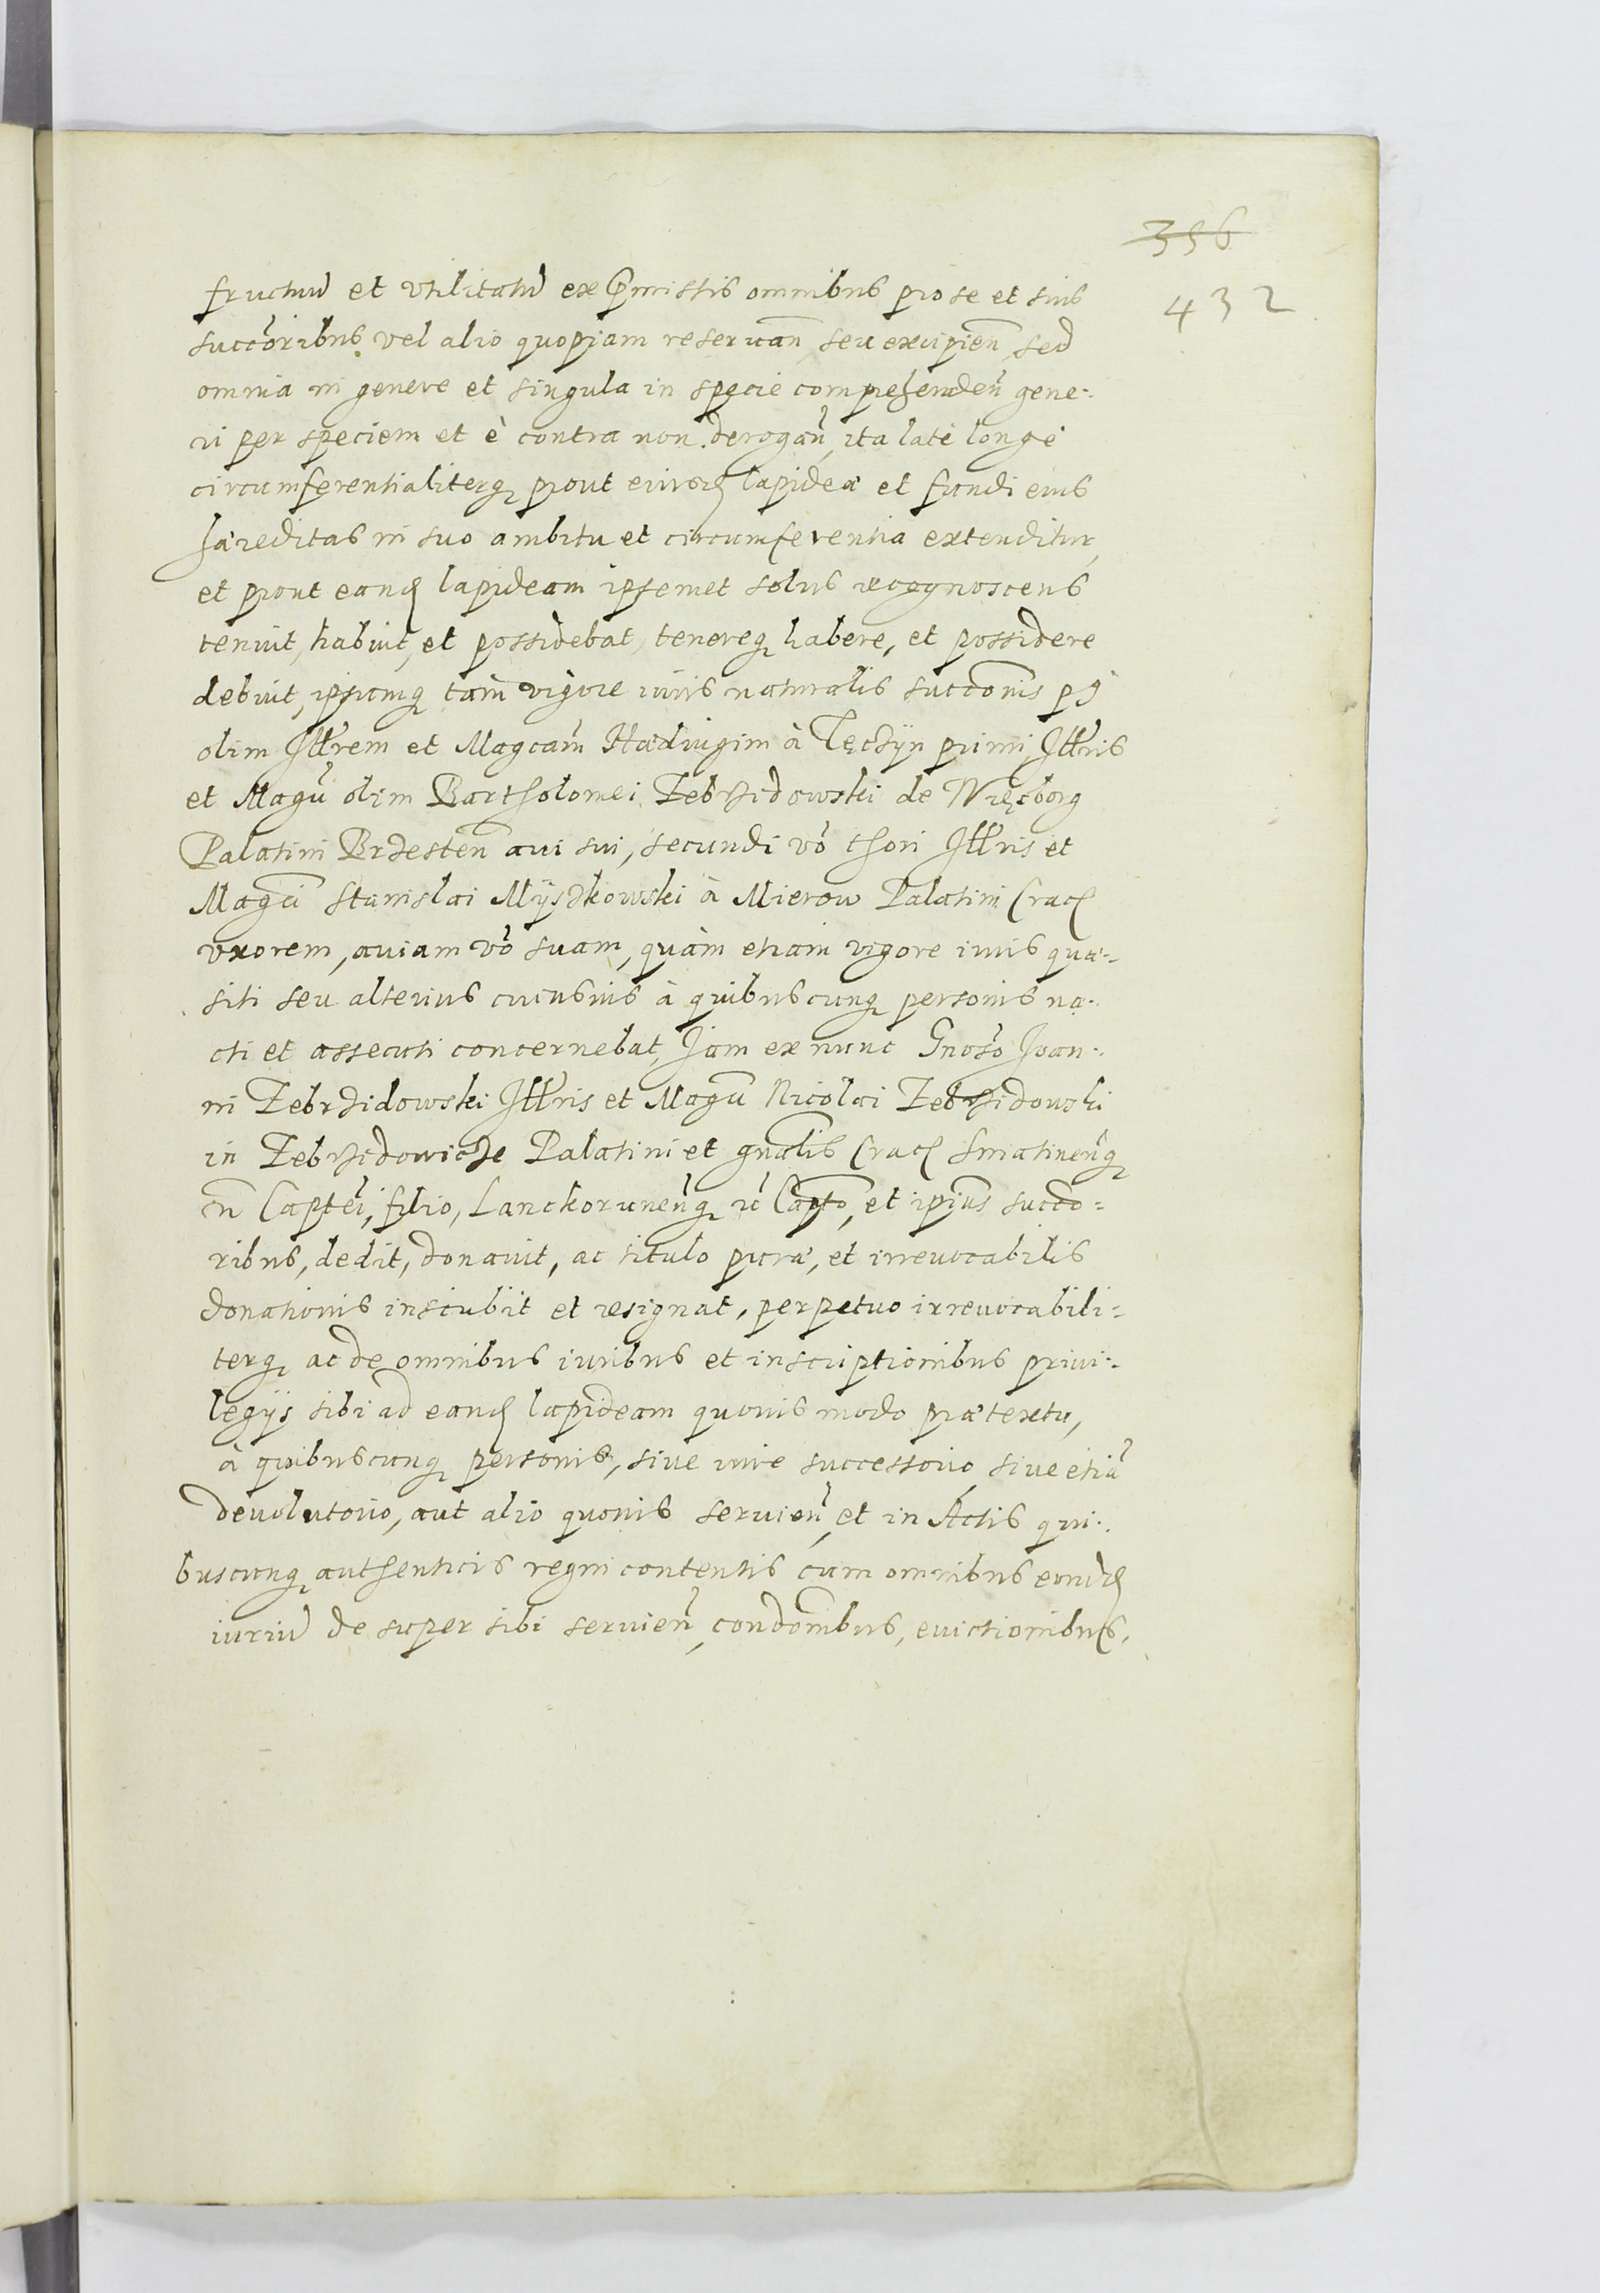 356
432
fructuũ et vtilitatũ ex Pmissis omnibus pro se et suis
succõribus vel alio quopiam reseruañ seu excipieñ sed
omnia in genere et singula in specie comprehendeñ gene-
ri per speciem et è contra non derogañ, ita latè longè
circumferentialiterq; prout eiusd lapideæ et fundi eius
hæreditas in suo ambitu et circumferentia extenditur,
et prout eand lapideam ipsemet solus recognoscens
tenuit, habuit, et possidebat, tenereq; habere, et possidere
debuit, ipsumq; tàm vigore iuris naturalis succõnis p
olim Illrem et Magcam̃ Hedvigim à Tęcżyn primi Illris
et Magcĩ olim Bartholomei Zebrzidowski de Więcborg
Palatini Brzesteñ aui sui, secundi võ thori Illris et
Magcĩ Stanislai Myszkowski à Mierow Palatini Crac
vxorem, auiam võ suam, quàm etiam vigore iuris quæ-
siti seu alterius cuiusuis à quibuscunq; personis na-
cti et assecuti concernebat, Jam ex nunc Gnõso Joan-
ni Zebrzidowski Illris et Magcĩ Nicolai Zebrzidowski
in Zebrzidowicze Palatini et gnãlis Crac Sniatineñq;
rc̃ Captei, filio, Lanckoruneñq; rc̃ Capto, et ipius succo-
ribus, dedit, donauit, ac titulo puræ, et irreuocabilis
donationis inscribit et resignat, perpetuo irreuocabili-
terq; ac de omnibus iuribus et inscriptionibus priui-
legijs sibi ad eand lapideam quouis modo prætextu,
à quibuscunq; personis, siue iure successorio, siue etiã
deuolutorio, aut alio quouis seruieñ, et in Actis qui-
buscunq; authenticis regni contentis cum omnibus eorund
iuriũ de super sibi seruieñ, condõnibus, euictionibus,